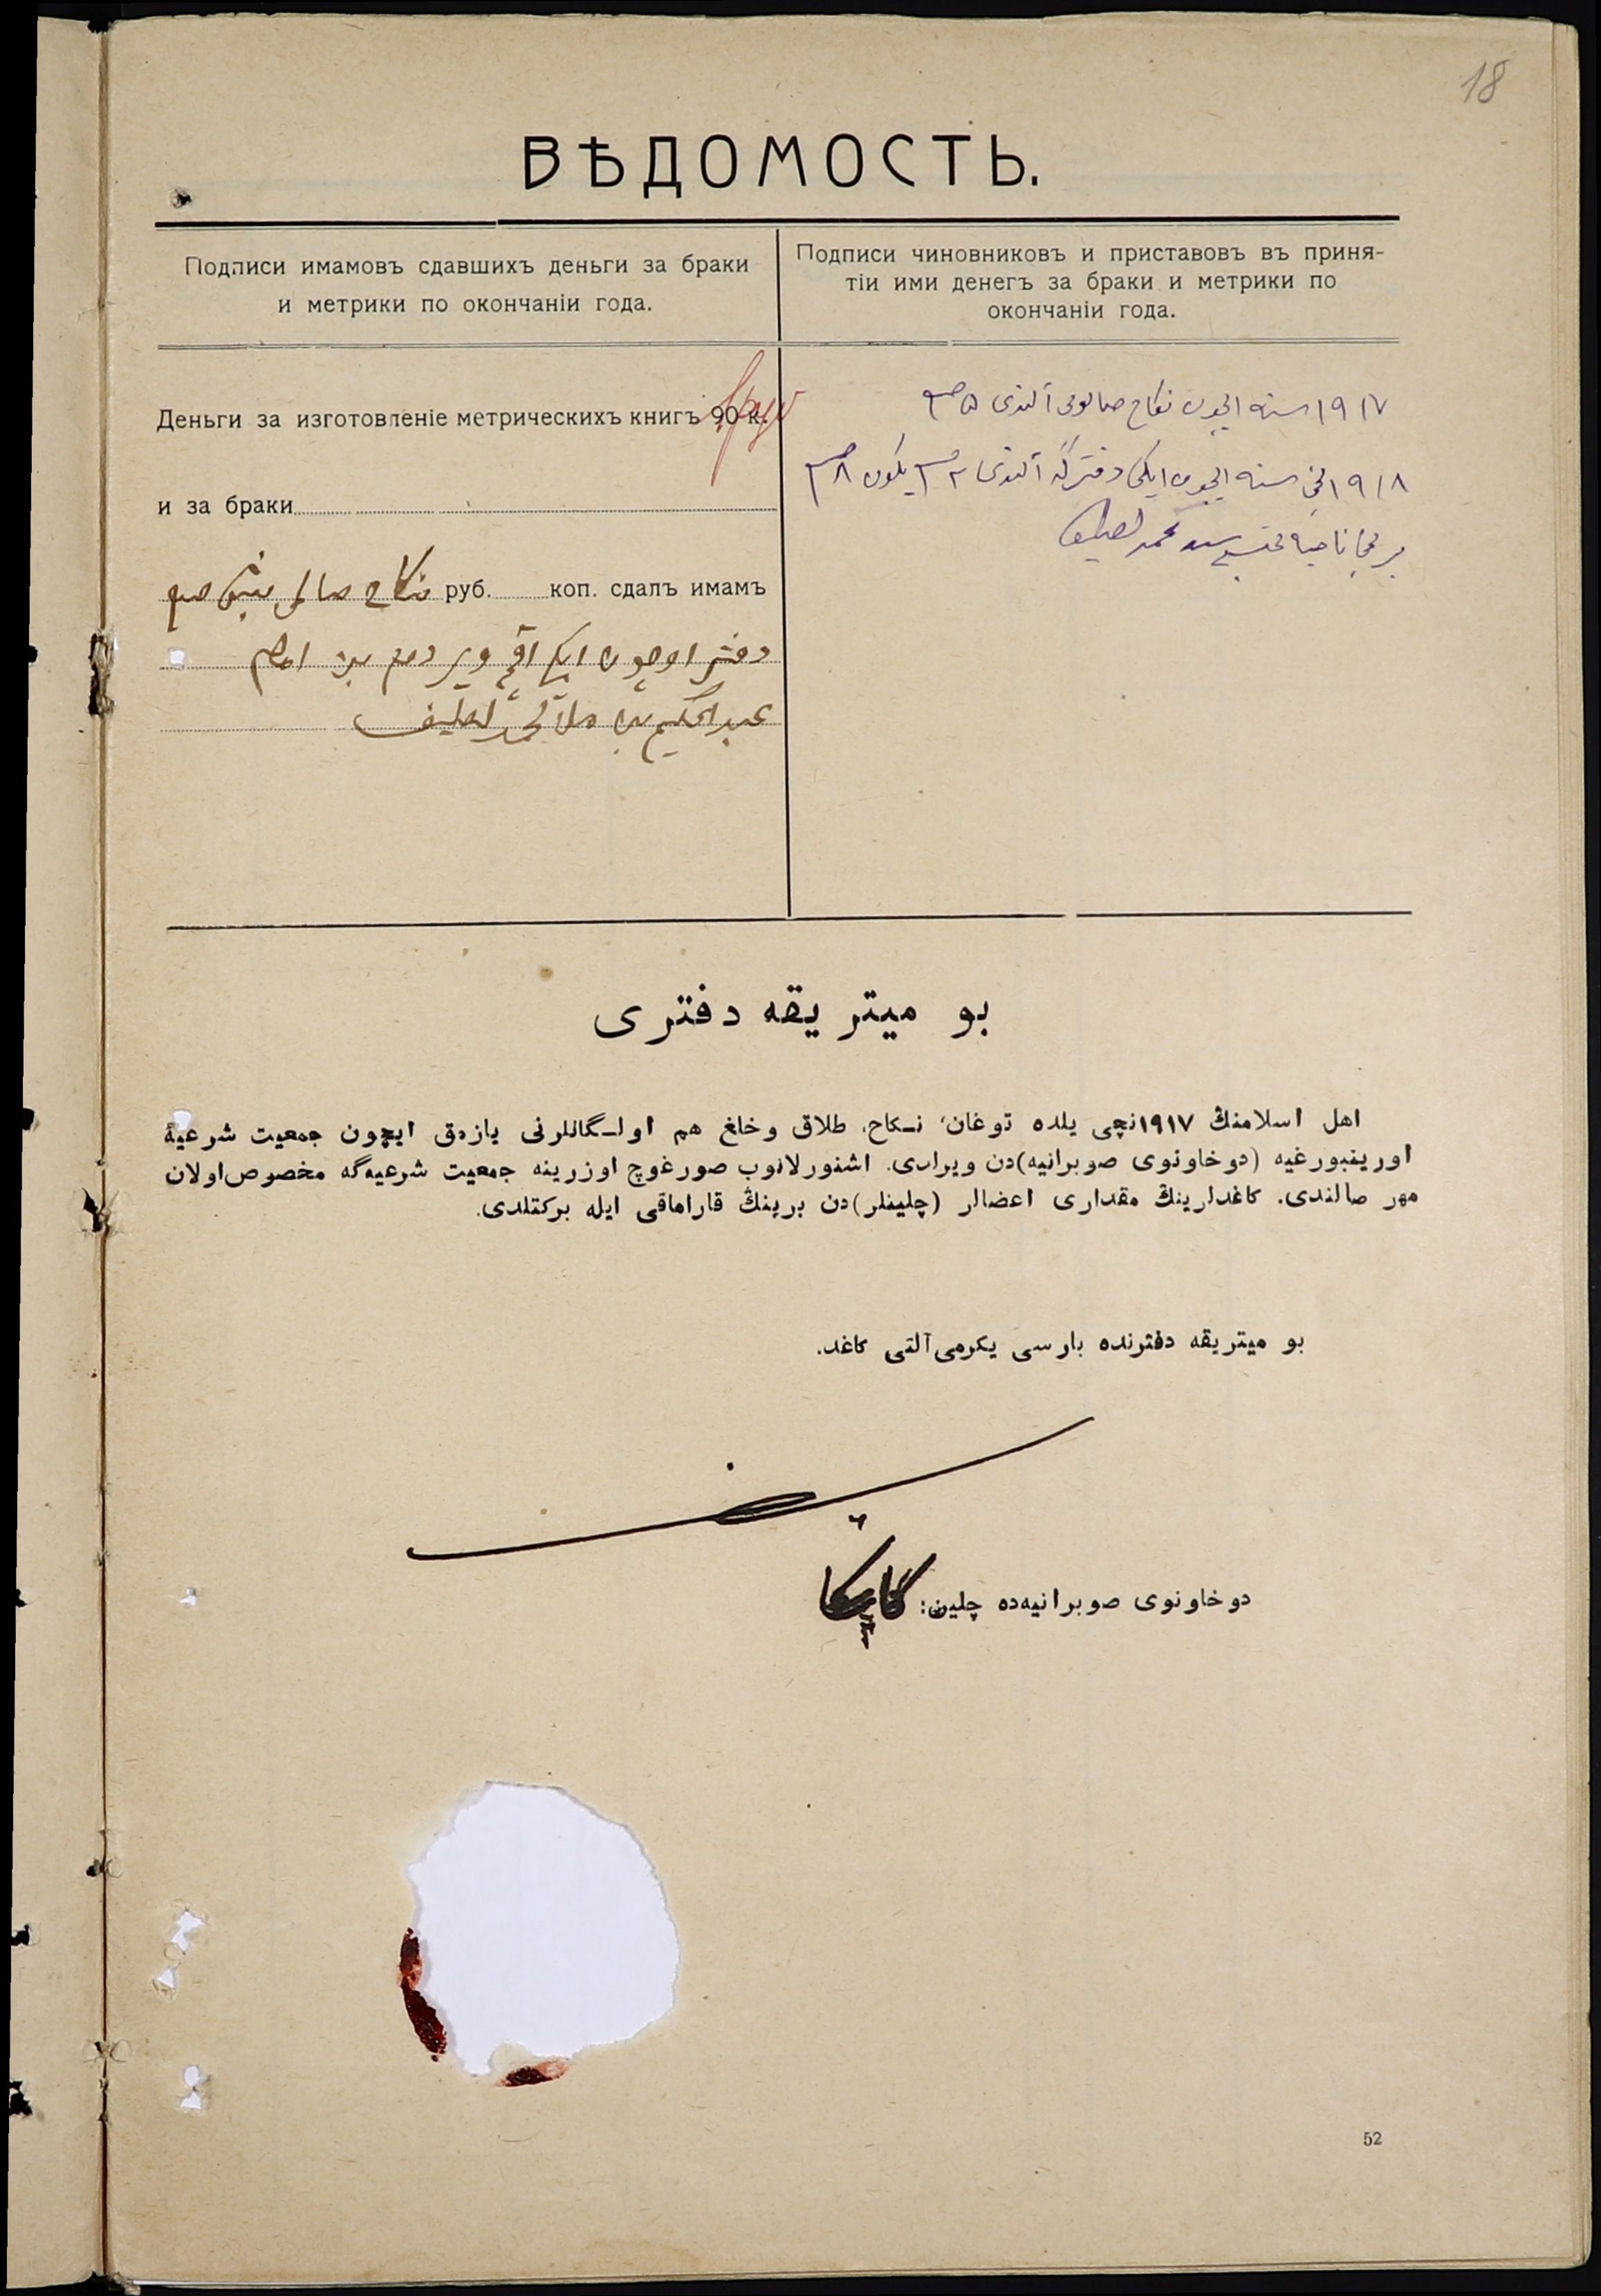 18
ВѢДОМОСТЬ.
Подписи имамовъ сдавшихъ деньги за браки
и метрики по окончаніи года.
Подписи чиновниковъ и приставовъ въ приня-
тіи ими денегъ за браки и метрики по
окончаніи года.
Деньги за изготовленіе метрическихъ книгъ 90 к.
и за браки
نكاح руб. коп. сдалъ имамъ
دفتر اوچون ايكى اقچه ويردم بن امام
عبدالحكيم بن ملا محمد لطيف
١٩١٧ سنه ايچون نكاح صالوی آلندی ٥
١٩١٨ نچی سنه ايچون ايكی دفترگه آلندی يكون ٨
بو ميتريقه دفتری
اهل اسلامنڭ ١٩١٧نچی يلده توغان، نـكاح، طلاق وخلغ هم اولـگانلرنی يازمق ايچون جمعيت شرعيهٔ
اورينبورغيه (دوخاونوی صوبرانيه)دن ويرلدی. اشنورلانوب صورغوچ اوزرينه جمعيت شرعيه‌گه مخصوص اولان
مهر صالندی. كاغدلارينڭ مقداری اعضالر (چلينلر)دن برينڭ قاراماقی ايله بركتلدی.
بو ميتريقه دفترنده بارسی يكرمی آلتی كاغد.
دوخاونوی صوبرانيه‌ده چلين:
52